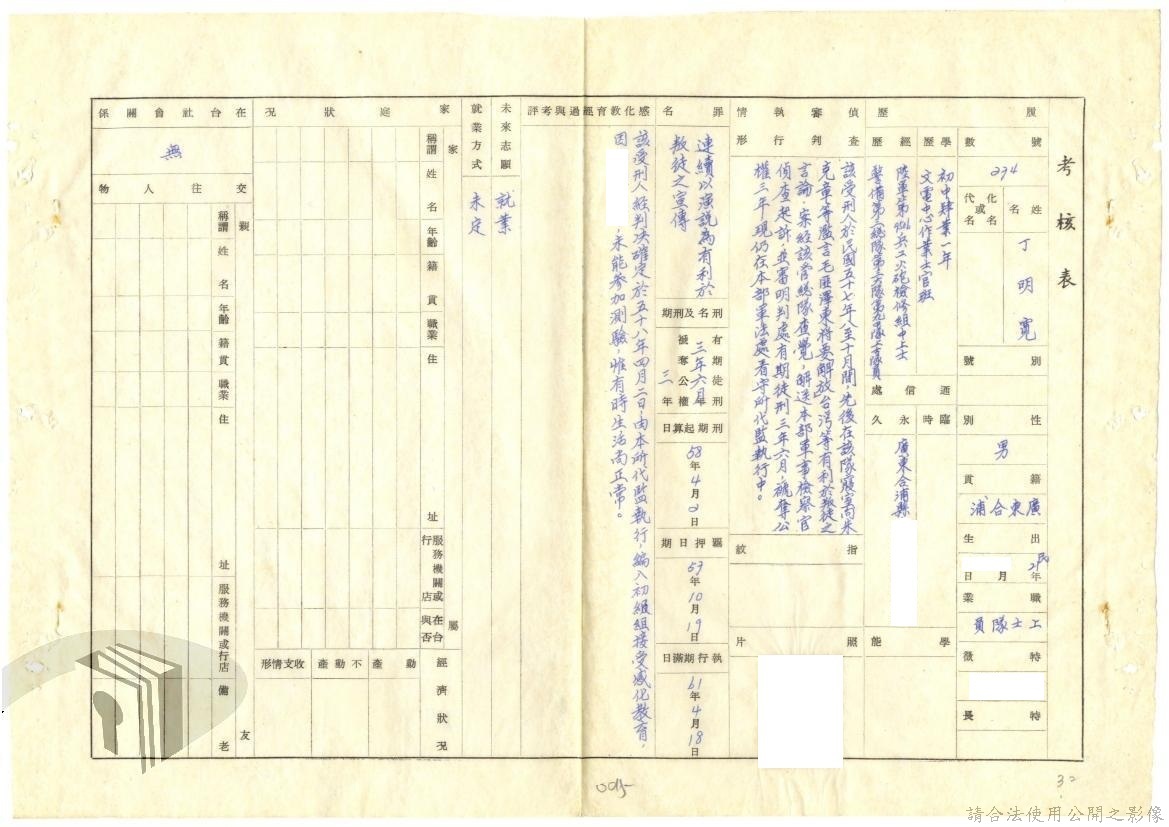 考核表
號數
234
姓名
丁明寬
化名或代名
別號
性別
男
籍貫
廣東合浦
出生
民2年 月 日
職業
上士隊員
特徵
特長
履歷
學歷
初中肄業一年
文電中心作業士官班
經歷
陸軍第 兵工火砲檢修組中士
警備第三總隊第 隊第九 隊上士隊員
通信處
臨時
永久
廣東合浦縣
學能
偵查審判執行情形
該受刑人於民國五十七年八至十月間先後在該隊寢室向朱
克章等濫言毛匪澤東將要解放台湾等有利於叛徒之
言論,案經該管總隊查覺,解送本部軍事檢察官
偵查起訴,並審明判處有期徒刑三年六月,褫奪公
權三年,現仍在本部軍法處看守所代監執行中。
指紋
照片
罪名
連續以演說為有利於
叛徒之宣傳
刑名及刑期
有期徒刑三年六月
褫奪公權三年
刑期起算日
58年4月2日
羈押日期
57年10月19日
執行期滿日
61年4月18日
感化教育經過與考評
該受刑人經判決確定於五十八年四月二日由本所代監執行,編入初級組接受感化教育,
因 ,未能參加測驗,惟有時生活尚正常。
未來志願
就業
就業方式
未定
家庭狀況
家屬
稱謂
姓名
年齡
籍貫
職業
住址
服務機關或行店
在台與否
經濟狀況
動產
不動產
收支情形
在台社會關係
無
交往人物
親友
稱謂
姓名
年齡
籍貫
職業
住址
服務機關或行店
備考
32
請合法使用公開之影像